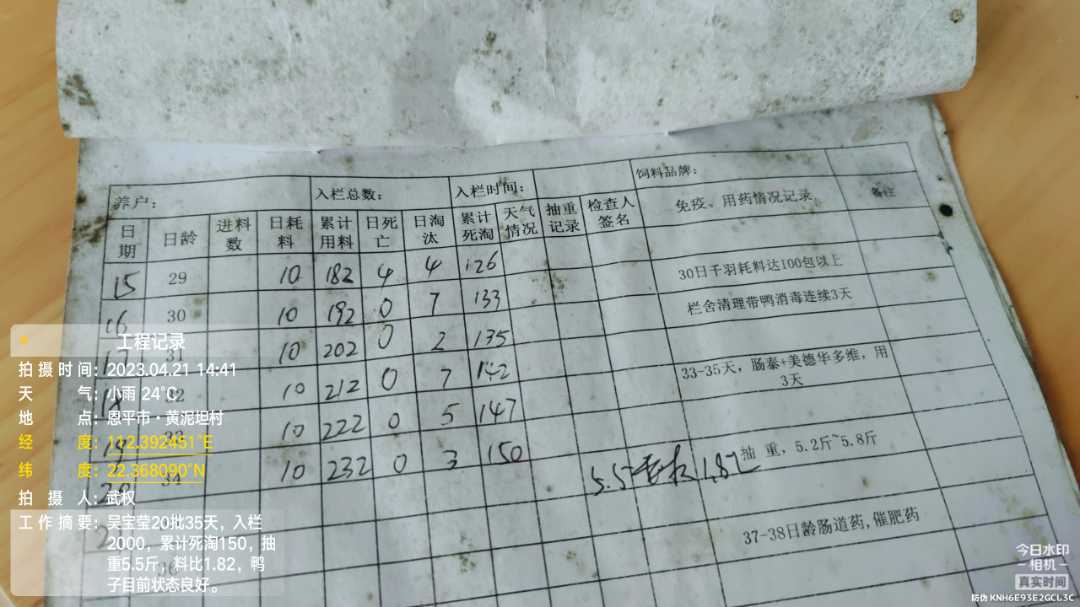 养户： 入栏总数： 入栏时间： 饲料品牌：
日期 日龄 进料数 日耗料 累计用料 日死亡 日淘汰 累计死淘 天气情况 抽重记录 检查人签名 免疫、用药情况记录 备注
15 29 10 182 4 4 126
30日千羽耗料达100包以上
16 30 10 192 0 7 133
栏舍清理带鸭消毒连续3天
31 10 202 0 2 135
10 212 0 7 142
33-35天，肠泰+美德华多维，用
3天
10 222 0 5 147
34 10 232 0 3 150
抽 重，5.2斤~5.8斤
5.5 1.82
37-38日龄肠道药,催肥药
工程记录
拍摄时间：2023.04.21 14:41
天 气：小雨 24℃
地 点：恩平市·黄泥坦村
经 度：112.392451°E
纬 度：22.368090°N
拍 摄 人：武权
工作摘要：吴宝莹20批35天，入栏
2000，累计死淘150，抽
重5.5斤，料比1.82，鸭
子目前状态良好。
今日水印
相机
真实时间
防伪 KNH6E93E2GCL3C